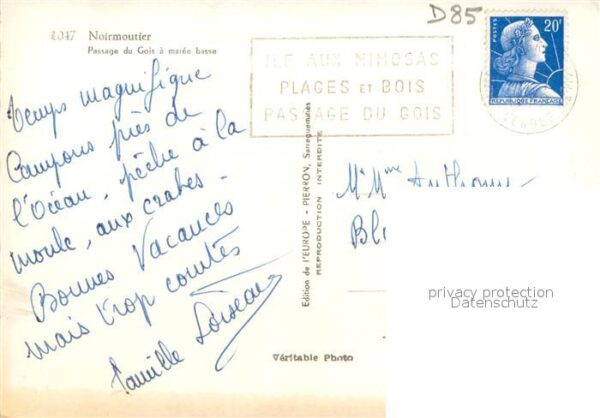 1047 Noirmoutier
Passage du Gois à marée basse
D85
ILE AUX MIMOSAS
PLAGES ET BOIS
PASSAGE DU GOIS
POSTES
20F
REPUBLIQUE FRANÇAISE
VENDEE
temps magnifique
Campons près de
l'Océan, pêche à la
moule, aux crabes -
Bonnes Vacances
mais trop courtes
famille Loiseau
Edition de l'EUROPE - PIERRON, Sarreguemines
REPRODUCTION INTERDITE
M. Mme Anthony
Bl
privacy protection
Datenschutz
Véritable Photo